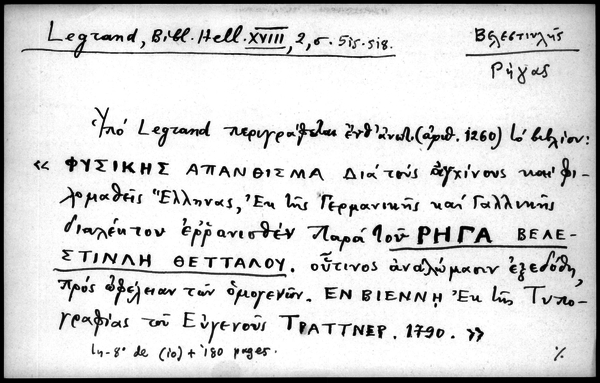 Legrand, Bibl. Hell. XVIII, 2, σ. 515-518.
Βελεστινλῆς
Ρήγας
Ὑπό Legrand περιγράφεται ἐνθ' ἀνωτ. (ἀριθ. 1260) τό βιβλίον:
« ΦΥΣΙΚΗΣ ΑΠΑΝΘΙΣΜΑ Διά τούς ἀγχίνους καί φι-
λομαθεῖς Ἕλληνας, Ἐκ τῆς Γερμανικῆς καί Γαλλικῆς
διαλέκτου ἐρρανισθέν Παρά τοῦ ΡΗΓΑ ΒΕΛΕ-
ΣΤΙΝΛΗ ΘΕΤΤΑΛΟΥ. οὗτινος ἀναλώμασιν ἐξεδόθη,
πρός ὠφέλειαν τῶν ὁμογενῶν. ΕΝ ΒΙΕΝΝῌ Ἐκ τῆς Τυπο-
γραφίας τοῦ Εὐγενοῦς ΤΡΑΤΤΝΕΡ. 1790. »
In-8° de (10) + 180 pages.